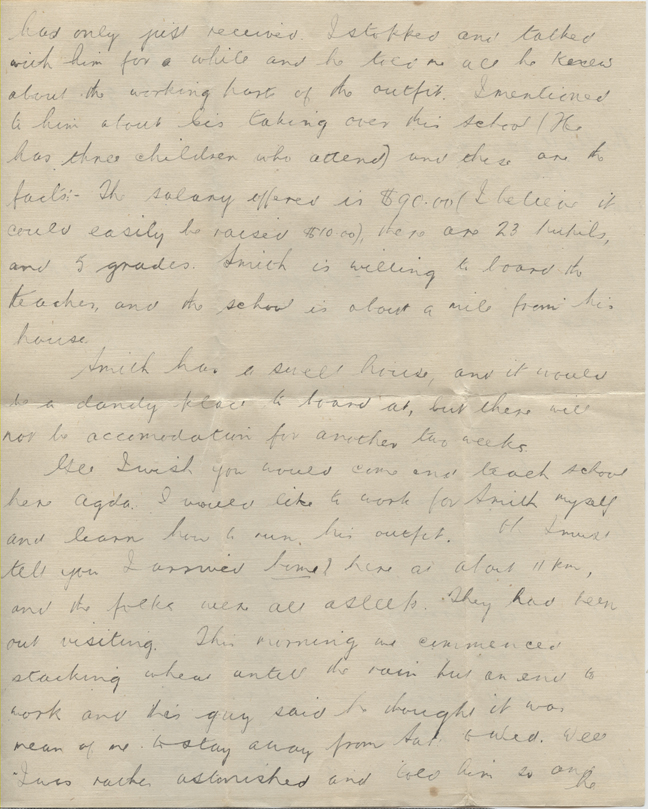 has only just received. I stopped and talked
with him for a while and he told me all he knew
about the working part of the outfit. I mentioned
to him about his taking over this school (He
has three children who attend) and these are the
facts:- The salary offered is $90.00 (I believe it
could easily be raised $10.00), there are 23 pupils,
and 5 grades. Smith is willing to board the
teacher, and the school is about a mile from his
house.
Smith has a swell house, and it would
be a dandy place to board at, but there will
not be accomodation for another two weeks.
Gee I wish you would come and teach school
here Agda. I would like to work for Smith myself
and learn how to run his outfit. I must
tell you I arrived home? here at about 11 P.M.,
and the folks were all asleep. They had been
out visiting. This morning we commenced
stacking wheat until the rain put an end to
work and this guy said he thought it was
mean of me to stay away from Sat. to Wed. Well
I was rather astonished and told him so and he